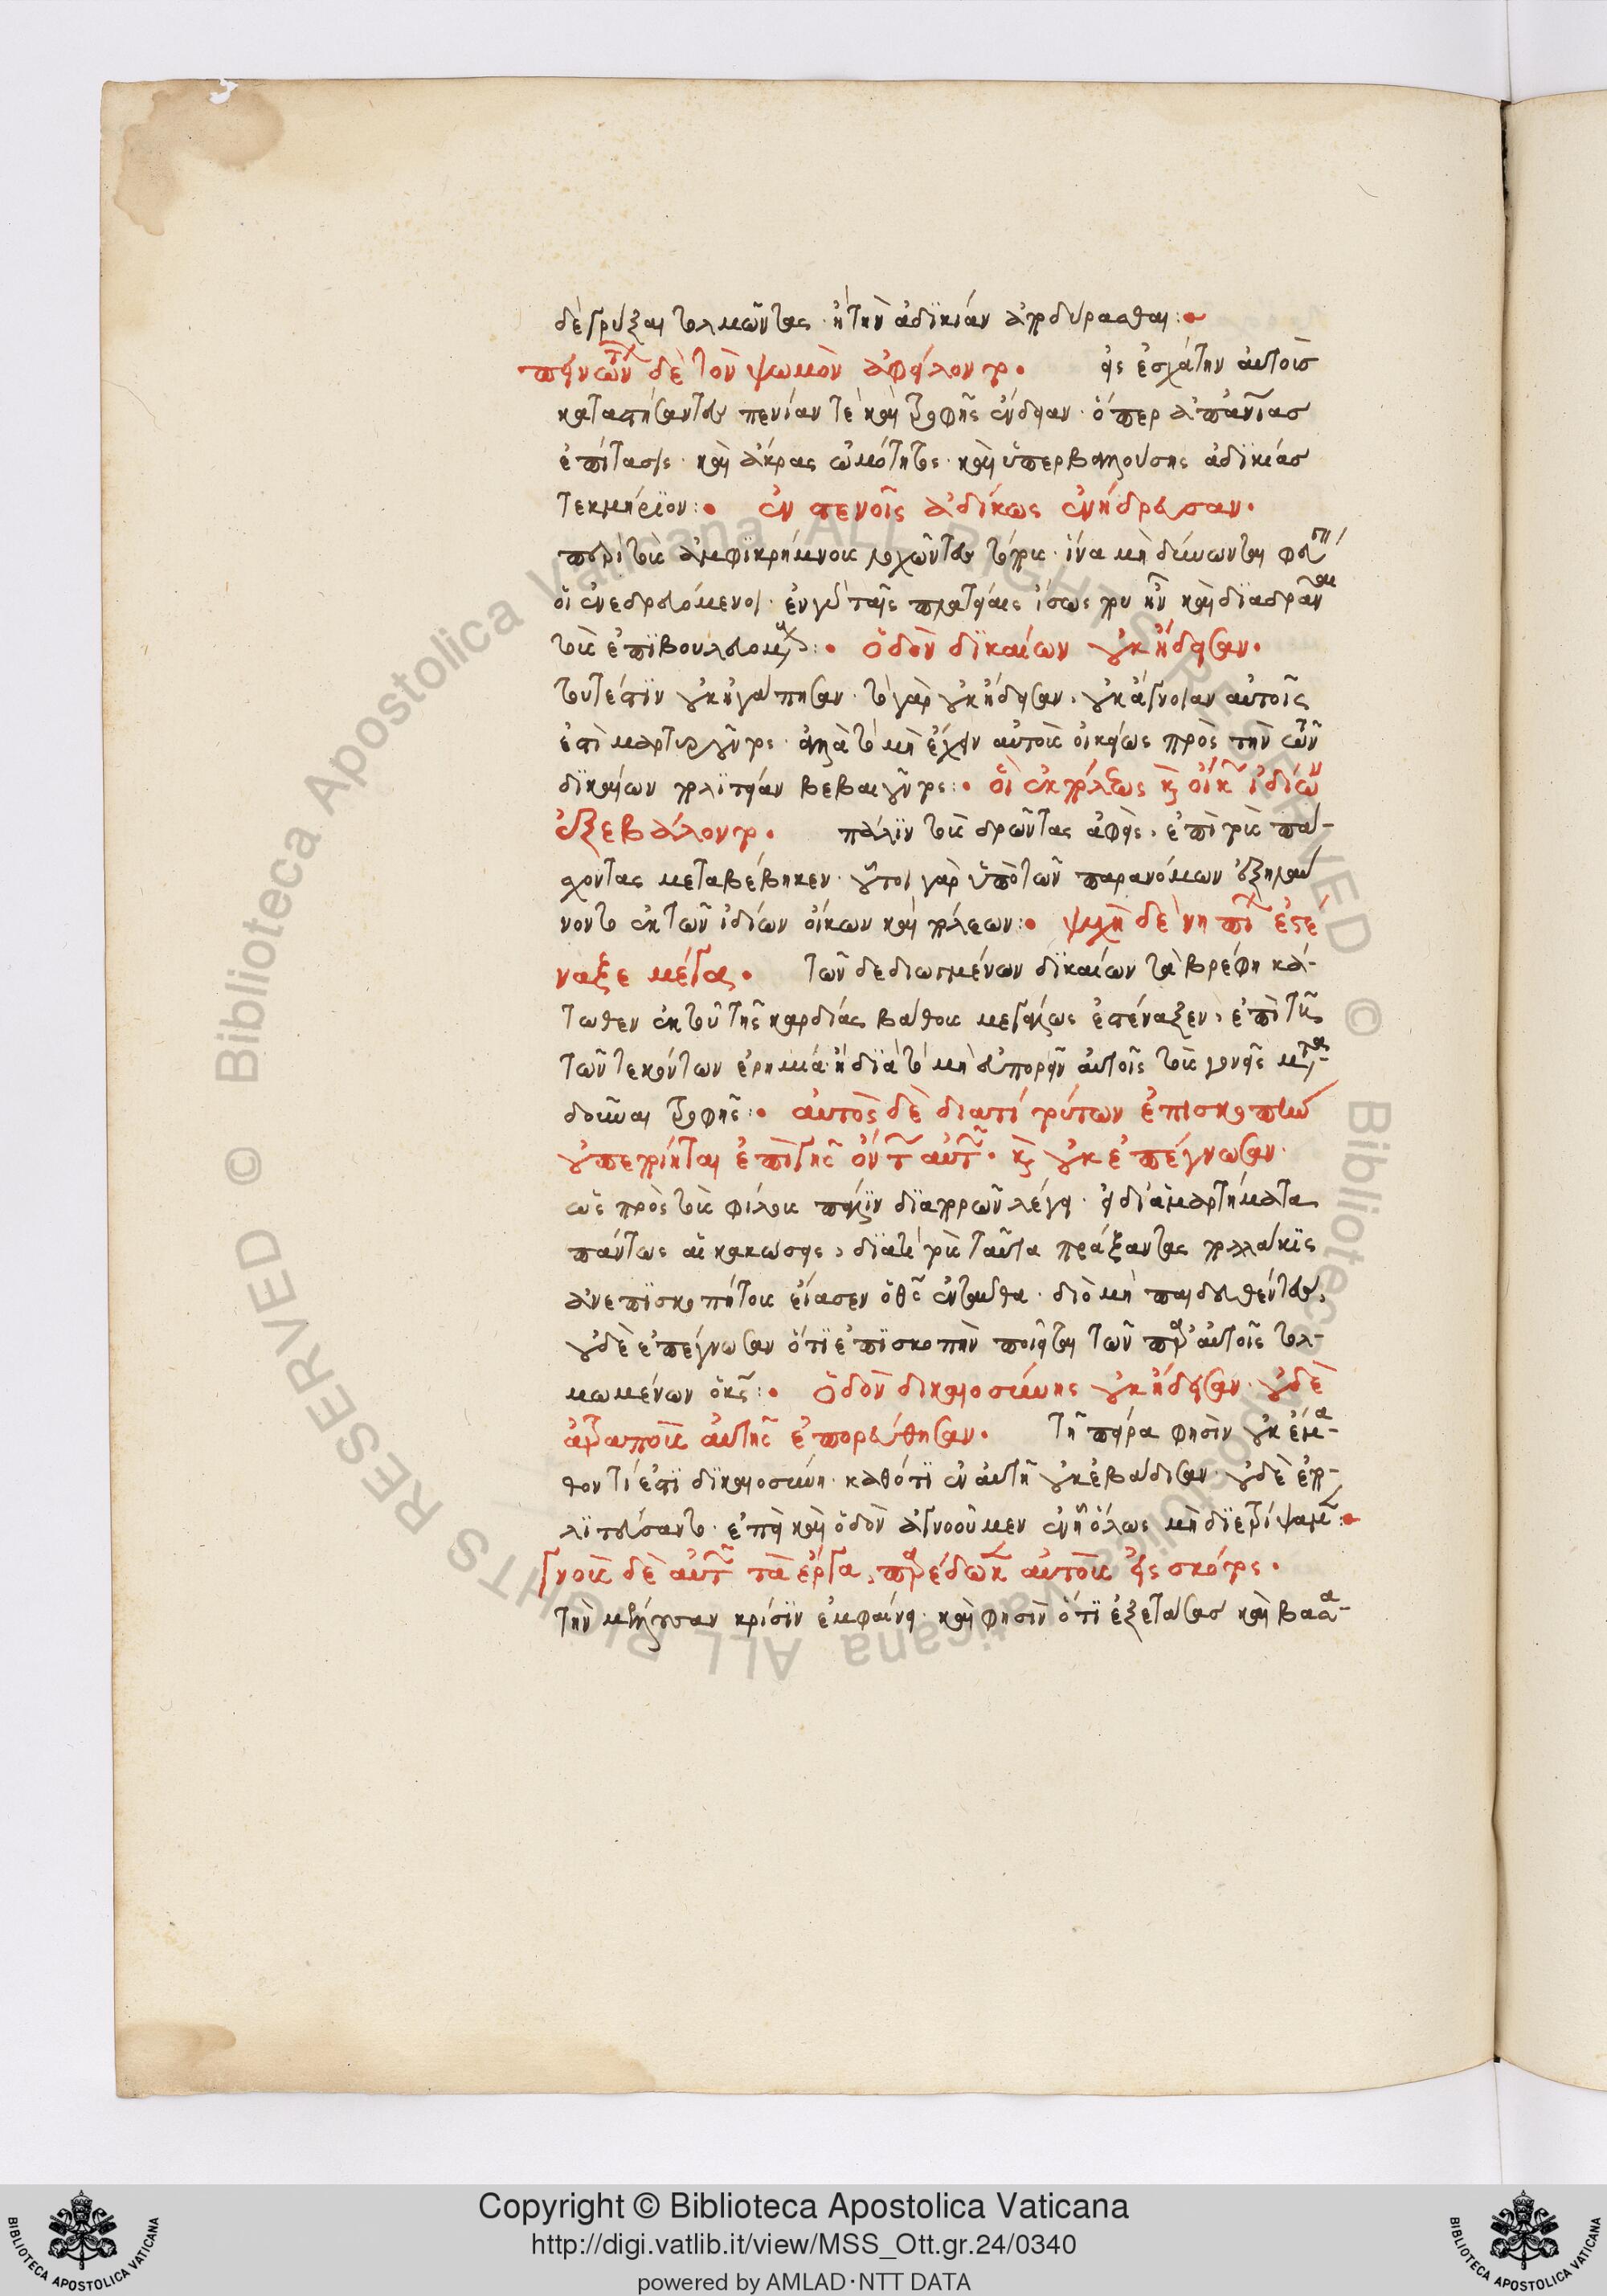 δὲ γρύξαι τολμῶντας· ἢ τὴν ἀδικίαν ἀποδύρασθαι:
πεινώντων δὲ τὸν ψωμὸν ἀφείλοντο. εἰς ἐσχάτην αὐτοῖς
καταστήσαντες πενίαν τε καὶ τροφῆς ἔνδειαν· ὅπερ ἀπανίας
ἐπίτασις· καὶ ἄκρας ὠμότητος· καὶ ὑπερβαλλούσης ἀδικίας
τεκμήριον: ἐν στενοῖς ἀδίκως ἐνήδρευσαν.
περὶ τοὺς ἀμφικρήμνους λοχῶντες τόπους· ἵνα μὴ δύνωνται φεύγειν
οἱ ἐνεδρευόμενοι· ἐν γὰρ ταῖς πλατείαις ἴσως που ἦν καὶ διαδρᾶναι
τοὺς ἐπιβουλευομένους: ὁδὸν δικαίων οὐκ ᾔδεισαν.
τουτέστιν οὐκ ἠγάπησαν· τὸ γὰρ οὐκ ᾔδεισαν, οὐκ ἄγνοιαν αὐτοῖς
ἐπιμαρτυροῦντος· ἀλλὰ τὸ μὴ ἔχειν αὐτοὺς οἰκείως πρὸς τὴν τῶν
δικαίων πολιτείαν βεβαιοῦντος: οἳ ἐκ πόλεως καὶ οἴκων ἰδίων
ἐξεβάλοντο. πάλιν τοὺς δρῶντας ἀφεὶς, ἐπὶ τοὺς πά-
σχοντας μεταβέβηκεν· οὗτοι γὰρ ὑπὸ τῶν παρανόμων ἐξηλαύ
νοντο ἐκ τῶν ἰδίων οἴκων καὶ πόλεων: ψυχὴ δὲ νηπίων ἐστέ
ναξε μέγα. τῶν δεδιωγμένων δικαίων τὰ βρέφη κά-
τωθεν ἐκ τοῦ τῆς καρδίας βάθους μεγάλως ἐστέναξεν, ἐπὶ τῆς
τῶν τεκόντων ἐρημία ἢ διὰ τὸ μὴ εὐπορεῖν αὐτοῖς τοὺς γονεῖς μετα-
δοῦναι τροφῆς: αὐτὸς δὲ διατί τούτων ἐπισκοπὴν
οὐ πεποίηται ἐπὶ γῆς ὄντων αὐτῶν. καὶ οὐκ ἐπέγνωσαν.
ὡς πρὸς τοὺς φίλους πάλιν διαπορῶν λέγει· εἰ δι' ἁμαρτήματα
πάντως αἱ κακώσεις, διατί τοὺς ταῦτα πράξαντας πολλάκις
ἀνεπισκοπήτους εἴασεν ὁ θεὸς ἐνταῦθα· διὸ μὴ παιδευθέντες,
οὐδὲ ἐπέγνωσαν ὅτι ἐπισκοπὴν ποιεῖται τῶν παρ' αὐτοῖς τολ-
μωμένων ὁ κύριος: ὁδὸν δικαιοσύνης οὐκ ᾔδεισαν· οὐδὲ
ἀτραποὺς αὐτῆς ἐπορεύθησαν. τῇ πείρᾳ φησὶν οὐκ ἔμα-
θον τί ἐστι δικαιοσύνη· καθότι ἐν αὐτῇ οὐκ ἐβάδισαν· οὐδὲ ἐπο-
λιτεύσαντο· ἐπεὶ καὶ ὁδὸν ἀγνοοῦμεν ἐν ᾗ ὅλως μὴ διετρίψαμεν:
γνοὺς δὲ αὐτῶν τὰ ἔργα, παρέδωκεν αὐτοὺς εἰς σκότος.
τὴν μέλλουσαν κρίσιν ἐμφαίνει· καὶ φησὶν ὅτι ἐξετάσας καὶ βασα-
Copyright © Biblioteca Apostolica Vaticana
http://digi.vatlib.it/view/MSS_Ott.gr.24/0340
powered by AMLAD·NTT DATA